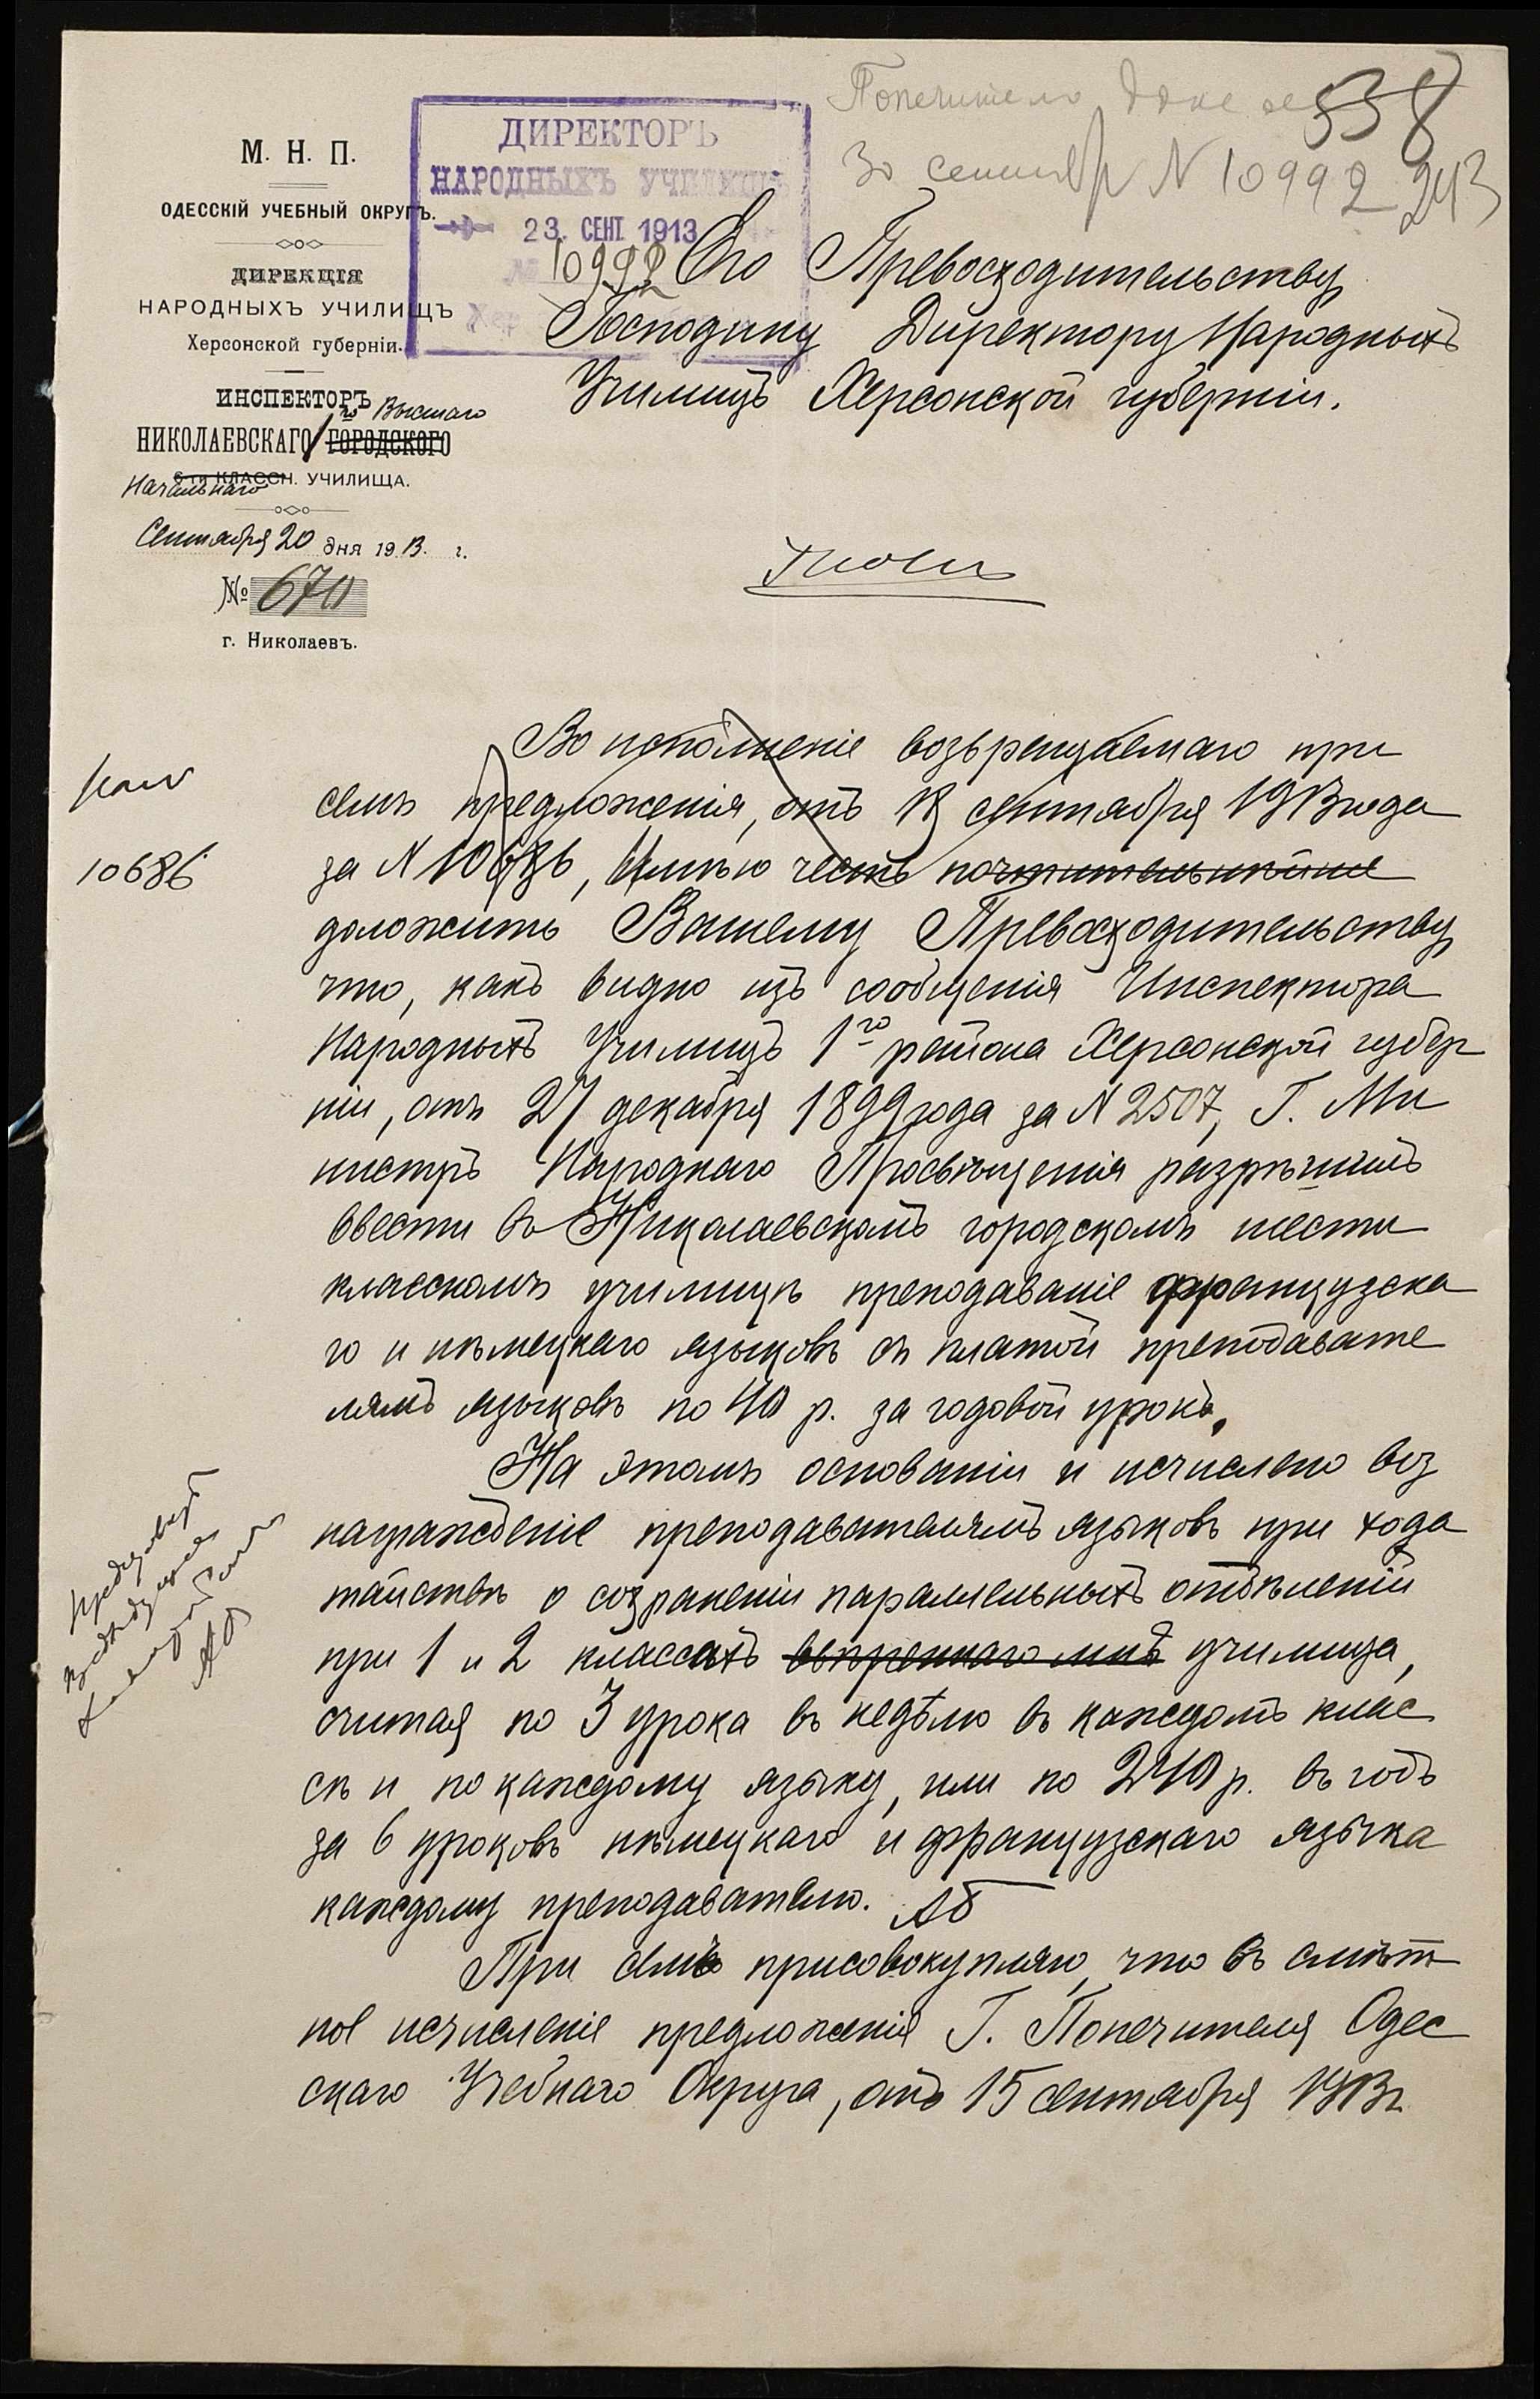 538
30 сентябр N 10992 243
М. Н. П.
ОДЕССКІЙ УЧЕБНЫЙ ОКРУГЪ.
ДИРЕКЦІЯ
НАРОДНЫХЪ УЧИЛИЩЪ
Херсонской губерніи.
ИНСПЕКТОРЪ
1го Высшаго
НИКОЛАЕВСКАГО ГОРОДСКОГО
Начальнаго
6-ти КЛАССН. УЧИЛИЩА.
Сентября 20 дня 1913. г.
№ 670
г. Николаевъ.
ДИРЕКТОРЪ
НАРОДНЫХЪ УЧИЛИЩЪ
23. СЕНТ 1913
№ 10992
Его Превосходительству
Господину Директору Народныхъ
Училищъ Херсонской губерніи.
Во исполненіе возвращаемаго при
семъ предложенія, отъ 18 сентября 1913 года
за N 10686, имѣю честь почтительнѣйше
доложить Вашему Превосходительству
что, какъ видно изъ сообщенія Инспектора
Народныхъ Училищъ 1го района Херсонской губер
ніи, отъ 27 декабря 1899 года за N 2507, Г. Ми
нистръ Народнаго Просвѣщенія разрѣшилъ
ввести въ Николаевскомъ городскомъ шести
классномъ училищѣ преподаваніе французска
го и нѣмецкаго языковъ съ платой преподавате
лямъ языковъ по 40 р. за годовой урокъ.
На этомъ основаніи и исчислено воз
награжденіе преподавателямъ языковъ при хода
тайствѣ о сохраненіи параллельныхъ отдѣленій
при 1 и 2 классахъ ввѣреннаго мнѣ училища,
считая по 3 урока въ недѣлю въ каждомъ клас
сѣ и по каждому языку, или по 240 р. въ годъ
за 6 уроковъ нѣмецкаго и французскаго языка
каждому преподавателю. АБ
При семъ присовокупляю, что въ смѣт
ное исчисленіе предложенія Г. Попечителя Одес
скаго Учебнаго Округа, отъ 15 сентября 1913 г.
10686